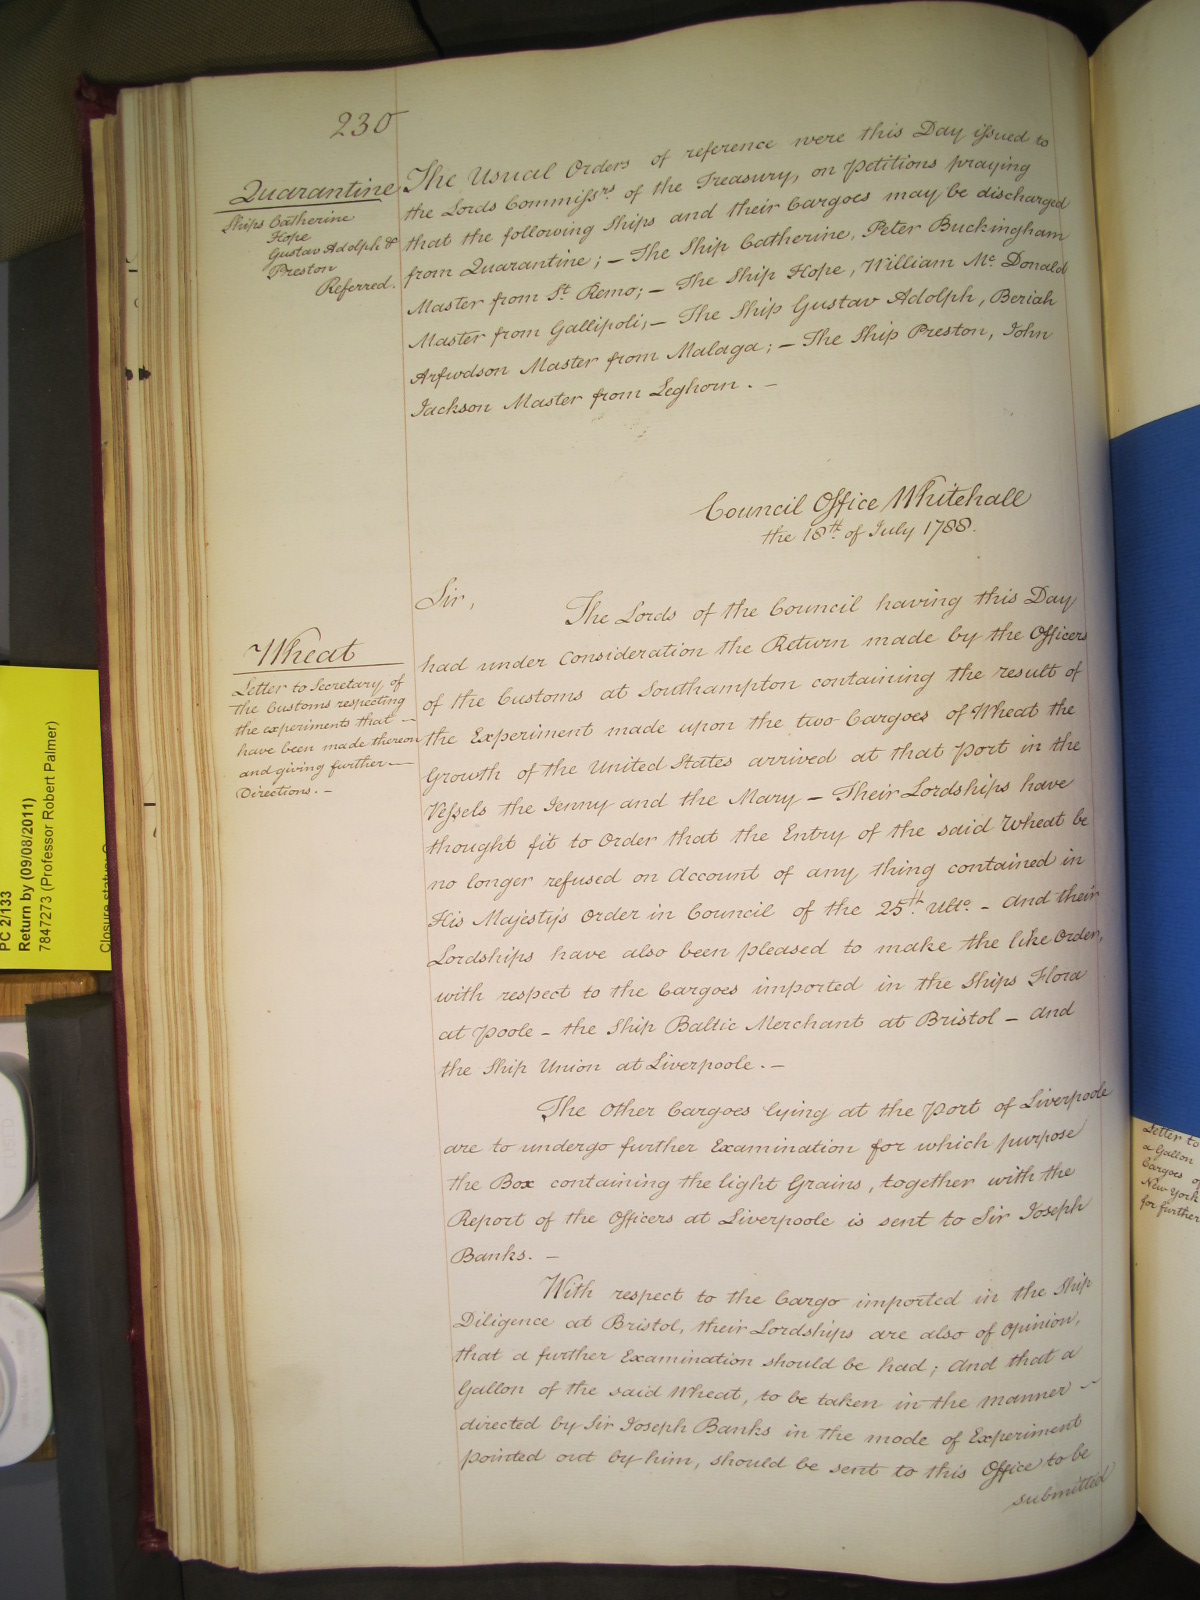 230
Quarantine
Ships Catherine
Hope
Gustav Adolph &
Preston
Referred.
The Usual Orders of reference were this Day issued to
the Lords Commissrs of the Treasury, on Petitions praying
that the following Ships and their Cargoes may be discharged
from Quarantine; – The Ship Catherine, Peter Buckingham
Master from St Remo; – The Ship Hope, William Mc Donald
Master from Gallipoli; – The Ship Gustav Adolph, Beriah
Arfwdson Master from Malaga; – The Ship Preston, John
Jackson Master from Leghorn. –
Council Office Whitehall
the 18th. of July 1788.
Wheat
Letter to Secretary of
the Customs respecting
the experiments that –
have been made thereon
and giving further –
Directions. –
Sir,
The Lords of the Council having this Day
had under Consideration the Return made by the Officers
of the Customs at Southampton containing the result of
the Experiment made upon the two Cargoes of Wheat the
Growth of the United States arrived at that Port in the
Vessels the Jenny and the Mary – Their Lordships have
thought fit to Order that the Entry of the said Wheat be
no longer refused on Account of any thing contained in
His Majesty's Order in Council of the 25th. Ulto. – and their
Lordships have also been pleased to make the like Order,
with respect to the Cargoes imported in the Ships Flora
at Poole – the Ship Baltic Merchant at Bristol – and
the Ship Union at Liverpoole. –
The Other Cargoes lying at the Port of Liverpoole
are to undergo further Examination for which purpose
the Box containing the light Grains, together with the
Report of the Officers at Liverpoole is sent to Sir Joseph
Banks. –
With respect to the Cargo imported in the Ship
Diligence at Bristol, their Lordships are also of Opinion,
that a further Examination should be had; and that a
Gallon of the said Wheat, to be taken in the manner –
directed by Sir Joseph Banks in the mode of Experiment
pointed out by him, should be sent to this Office to be
submitted
PC 2/133
Return by (09/08/2011)
7847273 (Professor Robert Palmer)
Closure status:
Letter to
a Gallon
Cargoes of
New York
for further